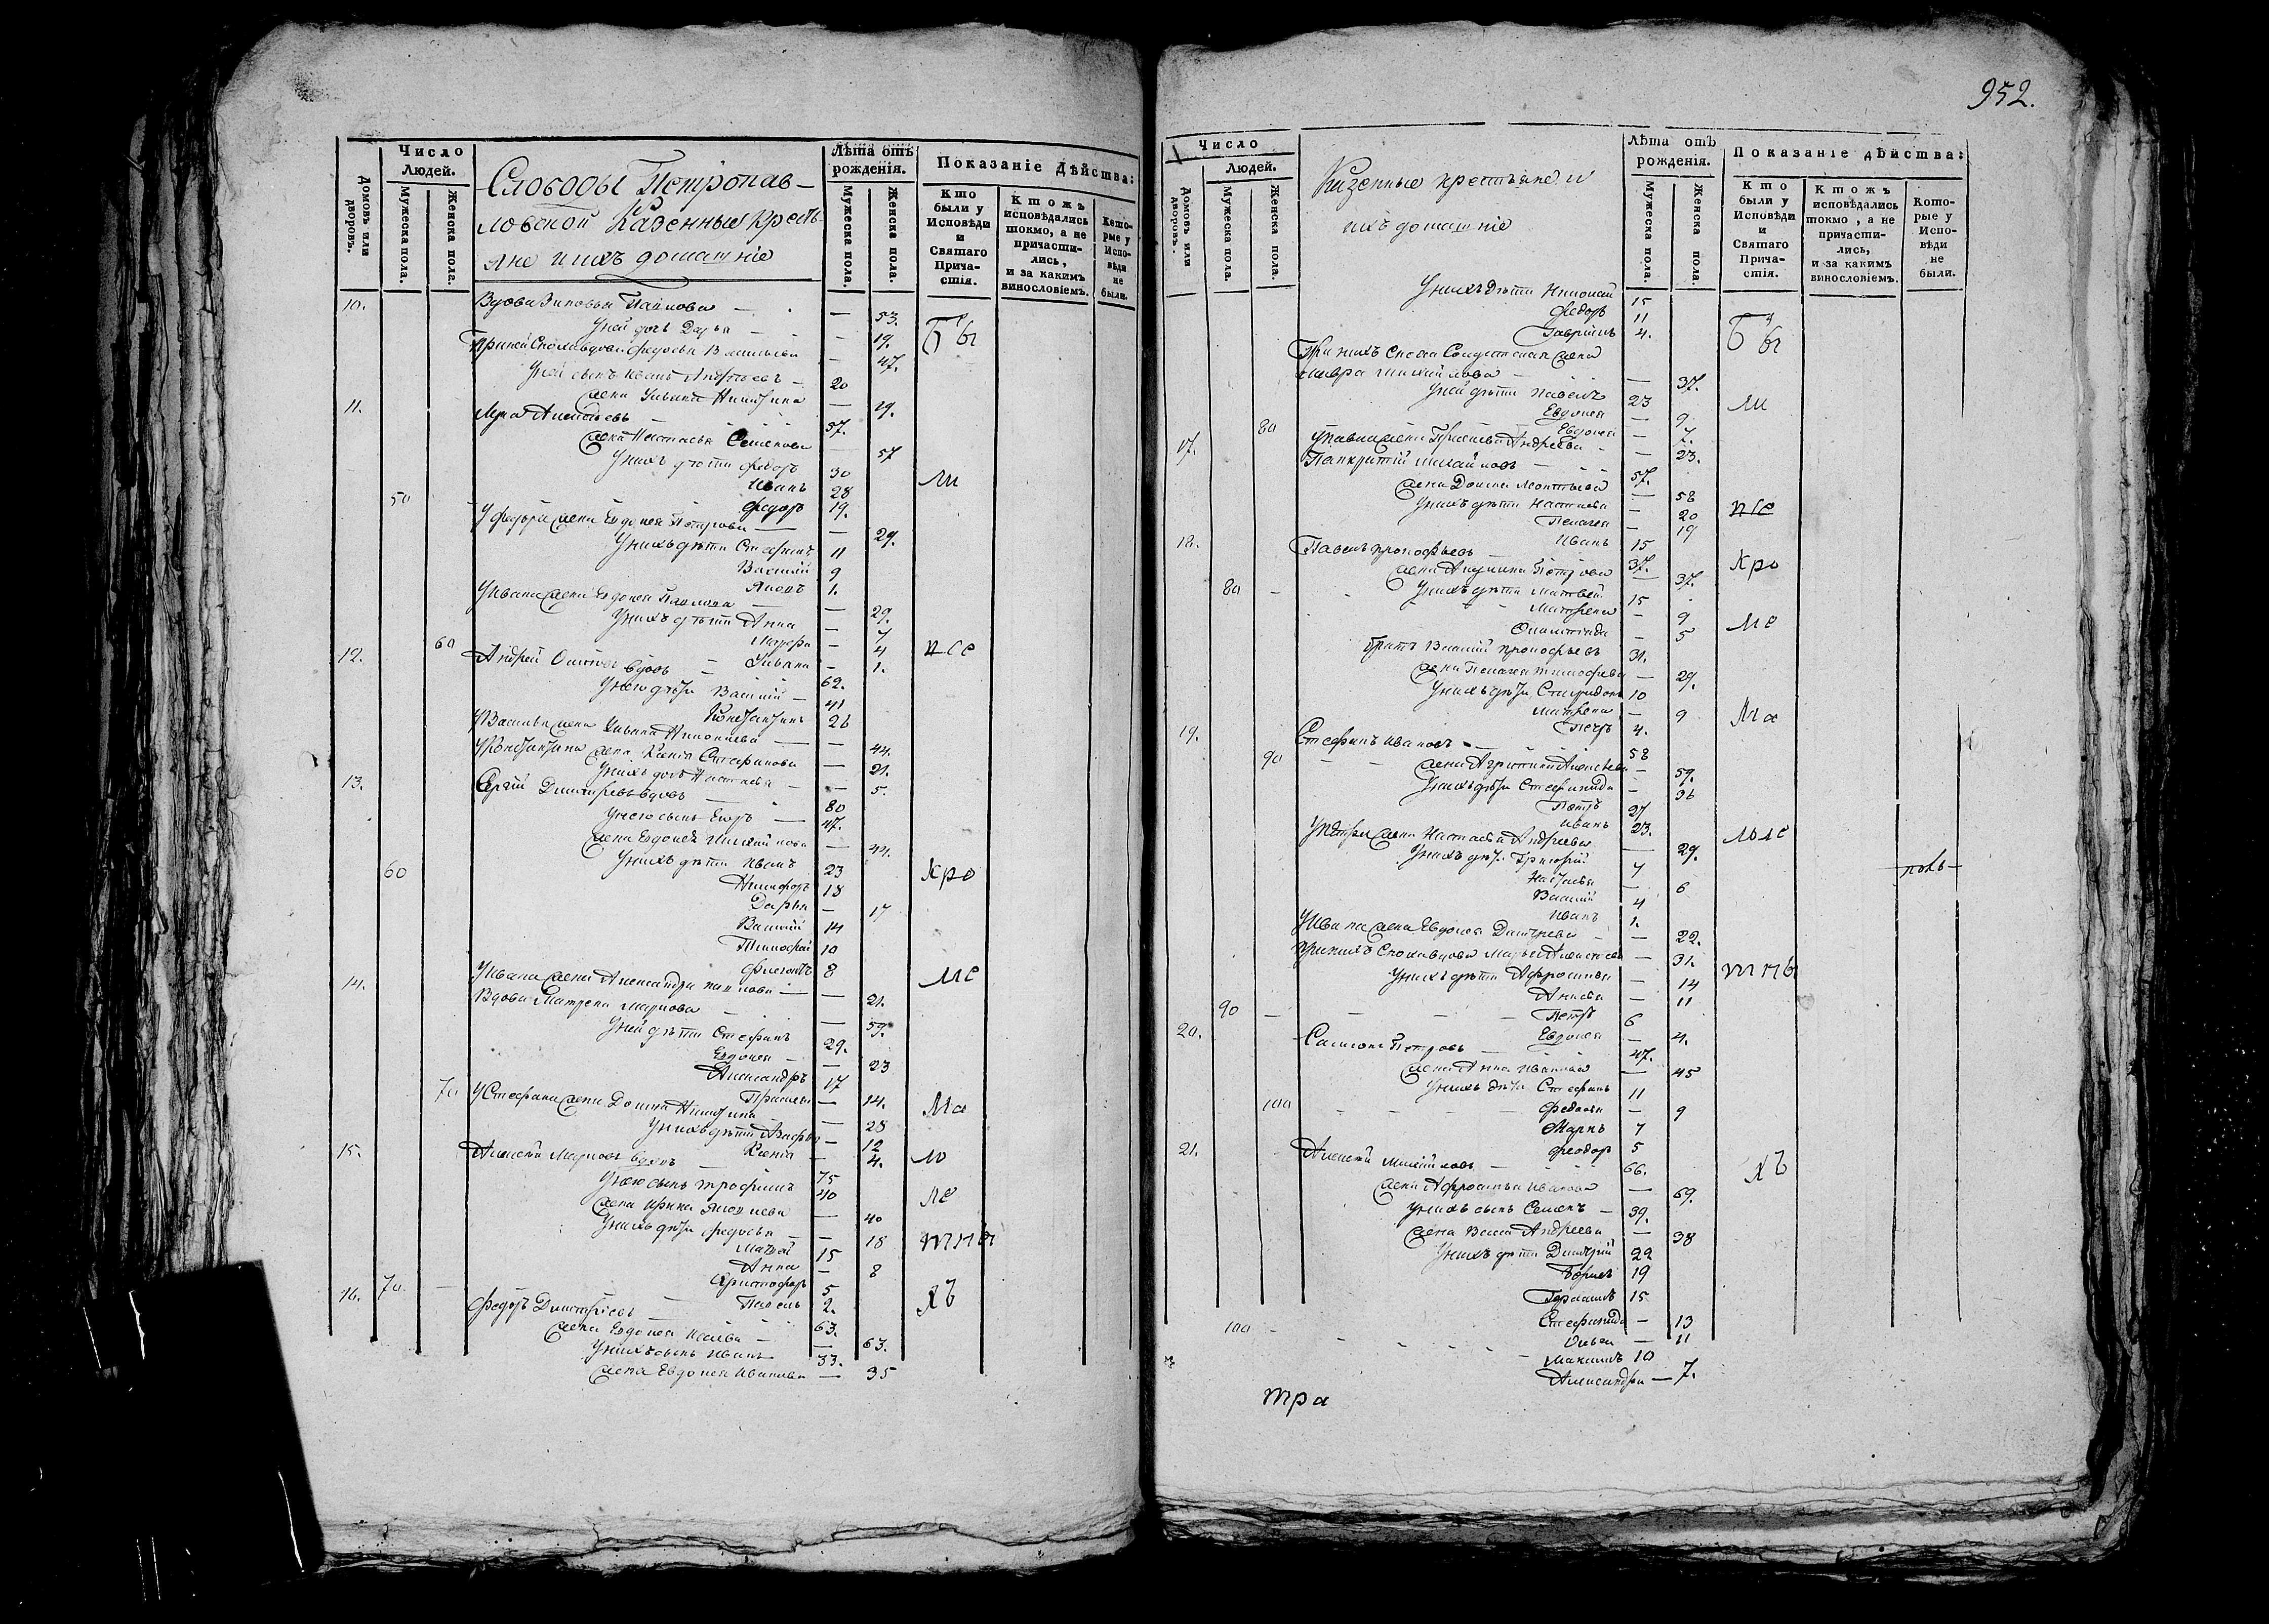 Число
Людей.
Домовъ или дворовъ.
Мужеска пола.
Женска пола.
Слободы Петропав-
ловской Казенные Кресть-
яне и ихъ домашніе
Лѣта отъ рожденія.
Мужеска пола.
Женска пола.
Показаніе Дѣйства:
Кто были у Исповѣди и Святаго Причастія.
Ктожъ исповѣдались токмо, а не причастились, и за какимъ винословіемъ.
Которые у Исповѣди не были.
10. Вдова Зиновья — 53.
У ней дочь Дарья — 19. Бы
При ней вдова Федосья Васильева — 47.
У ней сынъ Иванъ 20
жена Ульяна Никитина — 19.
11. Лука Алексѣевъ 57.
жена Настасья Семенова — 57
У нихъ дѣти Федоръ 30
Иванъ 28 ли
50 Федоръ 19.
У Федора жена Евдокея Петрова — 29.
У нихъ дѣти Стефанъ 11
Василій 9
Яковъ 1.
У Ивана жена Евдокея Павлова — 29.
У нихъ дѣти Анна — 7
60 Марфа — 4 псе
Ульяна — 1.
12. Андрей Осиповъ вдовъ 62.
У него дѣти Василій — 41
Константинъ 26
У Василья жена Ульяна Николаева — 44.
У Константина жена Ксенія Стефанова — 21.
У нихъ дочь Настасья — 5.
13. Сергій Димитріевъ вдовъ 80
У него сынъ Егоръ — 47.
жена Евдокея Михайлова — 44.
60 У нихъ дѣти Иванъ 23 Кро
Никифоръ 18
Дарья — 17
Василій 14
Тимофей 10
8
У Ивана жена Александра Павлова — 21. ме
14. Вдова Матрена Маркова — 59.
У ней дѣти Стефанъ 29.
Евдокея — 23
Александръ 17
70 — 14. Ма
У Стефана жена Домна Никитина — 28
У нихъ дѣти — 12
Ксенія — 4. ло
15. Алексѣй Марковъ вдовъ 75
У него сынъ Трофимъ 40 ле
жена Ирина Яковлева — 40
У нихъ дѣти Федосья — 18 тны
Матвѣй 15
Анна — 8
70 — Христофоръ 5
Павелъ 2. хъ
16. Федоръ Димитріевъ 63.
жена Евдокея — 63.
У нихъ сынъ Иванъ 33.
жена Евдокея Иванова — 35
952.
Число
Людей.
Домовъ или дворовъ.
Мужеска пола.
Женска пола.
Казенные крестьяне и
ихъ домашніе
Лѣта отъ рожденія.
Мужеска пола.
Женска пола.
Показаніе дѣйства:
Кто были у Исповѣди и Святаго Причастія.
Ктожъ исповѣдались токмо, а не причастились, и за какимъ винословіемъ.
Которые у Исповѣди не были.
У нихъ дѣти Николай 15
Федоръ 11
Гавріилъ 4. Бы
При нихъ жена
Мавра Михайлова — 37.
У ней дѣти Павелъ 23 ли
Евдокея — 9
80 Евдокея — 7.
У Павла жена Андреева — 23.
17. Панкратій Михайловъ 57.
жена Домна Леонтьева — 58
У нихъ дѣти Настасья — 20 псе
Пелагея — 19
Иванъ 15
18. Павелъ Прокофьевъ 37. Кро
жена Акулина Петрова — 37.
80 У нихъ дѣти Матвей 15
Матрена — 9
— 5 ме
Братъ Василій Прокофьевъ 31.
жена Пелагея Тимофеева — 29.
У нихъ дѣти Спиридонъ 10
Матрена — 9 Ма
Петръ 4.
19. Стефанъ Ивановъ 58
90 жена Агрипина Алексѣева — 59.
У нихъ дѣти Стефанида — 36
Петръ 27
Иванъ 23.
У Петра жена Настасья Андреева — 29. ломе
У нихъ дѣти Григорій 7
Настасья — 6
Василій 4
Иванъ 1.
У Ивана жена Евдокея Дмитриева — 22.
При нихъ Марья Алексѣева — 31.
У нихъ дѣти Афросинья — 14 тны
Анисья — 11
90 — Петръ 6
Евдокея — 4.
20. Самсонъ Петровъ 47.
жена Анна Иванова — 45
У нихъ дѣти Стефанъ 11
100 Федосья — 9
Маркъ 7
Феодоръ 5
21. Алексѣй Михайловъ 66. хъ
жена Афросинья Иванова — 69.
У нихъ сынъ Семенъ — 39.
жена Васса Андреева — 38
У нихъ дѣти Димитрій 22
Борисъ 19
Герасимъ 15
Стефанида — 13
100 — 11
Максимъ 10
Александра — 7.
тра